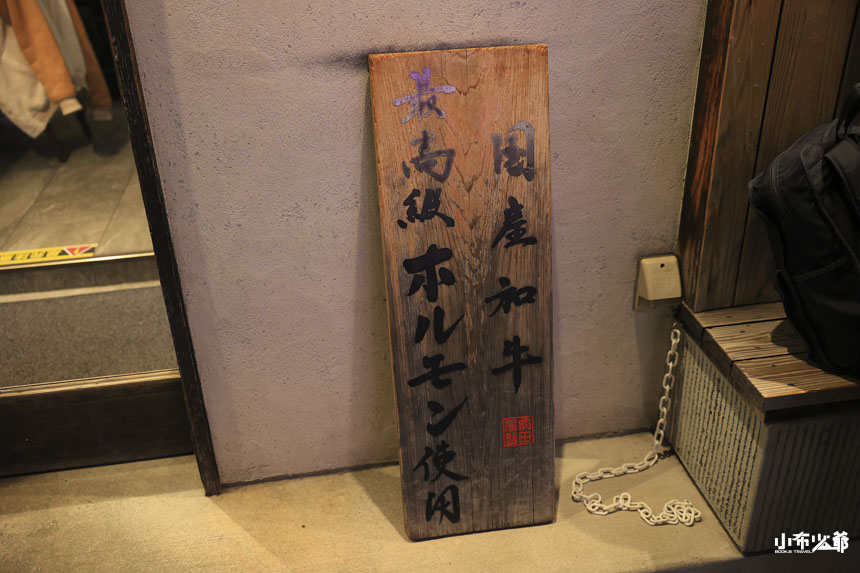 国産和牛
最高級ホルモン使用
小布少爺
BOOKJE TRAVEL